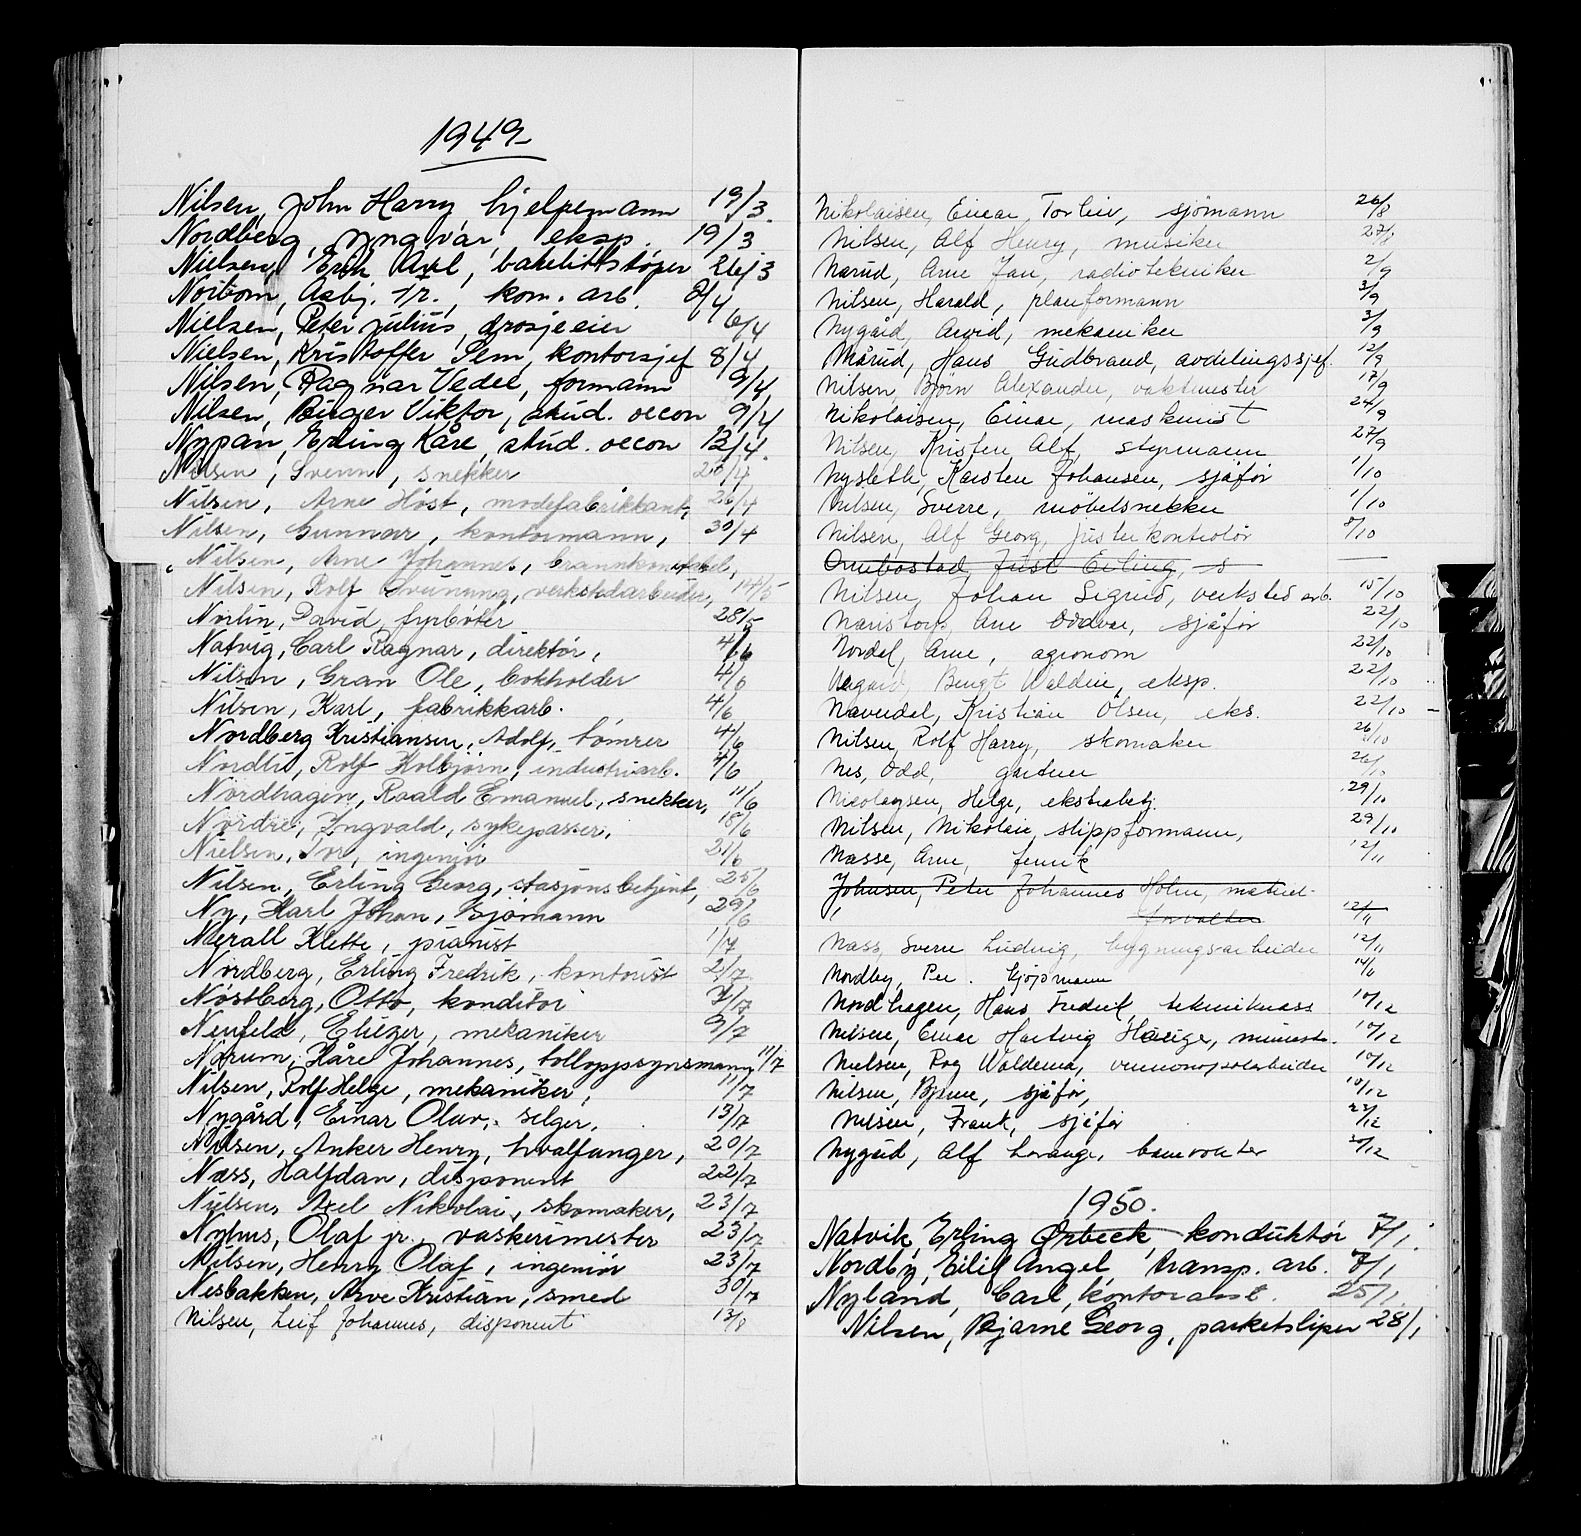 1949
Nilsen, John Harry, hjelpemann 19/3.
Nordberg, Yngvar, eksp. 19/3
Nielsen, Erik Axel, bakelittstøper 26/3
Noibom, Asbj. Fr., kom. arb. 2/4
Nielsen, Peter Julius, drosjeeier 6/4
Nielsen, Kristoffer Sem, kontorsjef 8/4
Nilsen, Ragnar Vedel, formann 9/4
Nilsen, Birger Viktor, stud. oecon 9/4
Nypan, Erling Kåre, stud. oecon 13/4.
Nilsen, Svenn, snekker 20/4
Nilsen, Arne Høst, motefabrikkant, 26/4
Nilsen, Gunnar, kontormann, 30/4
Nilsen, Arne Johannes,
Nilsen, Rolf verkstedarbeider, 14/5
Norlin, David, fyrbøter 28/5
Natvig, Carl Ragnar, direktør, 4/6
Nilsen, Gran Ole, bokholder 4/6
Nilsen, Karl, fabrikkarb. 4/6
Nordberg Kristiansen, Adolf, tømrer 4/6
Nordli, Rolf Kolbjørn, industriarb. 4/6
Nordhagen, Roald Emanuel, snekker, 11/6
Nordre, Yngvald, sykepasser, 18/6
Nielsen, Tor, ingeniør 21/6
Nilsen, Erling Georg, stasjonsbetjent, 25/6
Ny, Karl Johan, sjømann 29/6
Nærall Klette, pianist 1/7
Nordberg, Erling Fredrik, kontorist 2/7
Nøstberg, Otto, konditor 7/7
Neufeld, Eliezer, mekaniker 9/7
Norum, Kåre Johannes, tolloppsynsmann, 11/7
Nilsen, Rolf Helge, mekaniker, 11/7
Nygård, Einar Olav, selger, 13/7
Nilsen, Anker Henry, hvalfanger, 20/7
Næss, Halfdan, disponent 22/7
Nielsen, Axel Nikolai, skomaker, 23/7
Nyhus, Olaf jr., vaskerimester 23/7
Nilsen, Henry Olaf, ingeniør 23/7
Nesbakken, Arve Kristian, smed 30/7
Nilsen, Leif Johannes, disponent 13/8
Nikolaisen, Einar Torleiv, sjømann 26/8
Nilsen, Alf Henry, musiker 27/8
Narud, Arne Jan, radiotekniker 2/9
Nilsen, Harald, planformann 3/9
Nygård, Arvid, mekaniker 3/9
Mårud, Hans Gudbrand, avdelingssjef. 12/9
Nilsen, Bjørn Alexander, vaktmester 17/9
Nikolaisen, Einar, maskinist 24/9
Nilsen, Kristen Alf, styrmann 27/9
Nysleth, Karsten Johansen, sjåfør 1/10
Nilsen, Sverre, møbelsnekker 1/10
Nilsen, Alf Georg, justerkontrolør 8/10
Just Erling, s
Nilsen, Johan Sigurd, verksted arb. 15/10
Arne Oddvar, sjåfør 22/10
Nordal, Arne, agronom 22/10
Bengt Waldin, eksp. 22/10
Naverdal, Kristian Olsen, eks. 22/10
Nilsen, Rolf Harry, skomaker 26/10
Nes, Odd, gartner 26/10
Nicolaysen, Helge, ekstrabetj. 29/10
Nilsen, Nikolai, slippformann, 29/10
Næsse, Arne, fenrik 12/11
Johnsen, Peter Johannes Holm, materiel-
forvalter 12/11
Næss, Sverre Ludvig, bygningsarbeider 12/11
Nordby, Per. kjøpmann 14/11
Nordhagen, Hans Fredrik, teknikerass 10/12
Nilsen, Einar Hartvig Hauge, 10/12
Nielsen, Roy Waldemar, vinmonopolarbeider 10/12
Nilsen, Bjarne, sjåfør, 10/12
Nilsen, Frank, sjåfør 22/12
Nygård, Alf banevokter 30/12
1950.
Natvik, Erling Ørbeck, konduktør 7/1.
Nordby, Eilif Angel transp. arb. 7/1
Nyland, Carl, kontorasst. 25/1.
Nilsen, Bjarne Georg, parketsliper 28/1